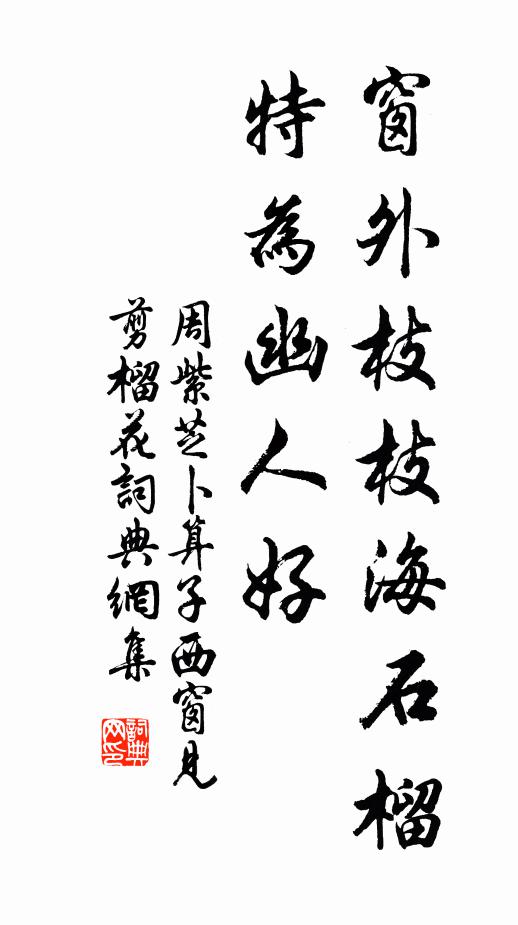 窗外枝枝海石榴
特為幽人好
周紫芝卜算子西窗見
剪榴花詞典網集
詞典
网印